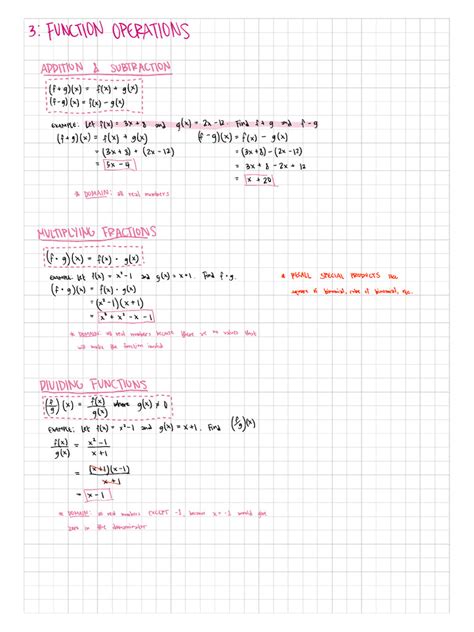 3: FUNCTION OPERATIONS
ADDITION & SUBTRACTION
(f+g)(x) = f(x) + g(x)
(f-g)(x) = f(x) - g(x)
example: Let f(x) = 3x+8 and g(x) = 2x-12. Find f+g and f-g
(f+g)(x) = f(x) + g(x)
= (3x+8) + (2x-12)
= 5x-4
(f-g)(x) = f(x) - g(x)
= (3x+8) - (2x-12)
= 3x+8-2x+12
= x+20
* DOMAIN: all real numbers
MULTIPLYING FRACTIONS
(f·g)(x) = f(x)·g(x)
example: Let f(x) = x²-1 and g(x) = x+1. Find f·g.
(f·g)(x) = f(x)·g(x)
= (x²-1)(x+1)
= x³+x²-x-1
* RECALL SPECIAL PRODUCTS like
square of binomial, cube of binomial, etc.
* DOMAIN: all real numbers because there is no values that
will make the function invalid
DIVIDING FUNCTIONS
(f/g)(x) = f(x)/g(x) where g(x) ≠ 0
example: Let f(x) = x²-1 and g(x) = x+1. Find (f/g)(x)
f(x)/g(x) = x²-1/x+1
= (x+1)(x-1)/x+1
= x-1
* DOMAIN: all real numbers EXCEPT -1, because x = -1 would give
zero in the denominator